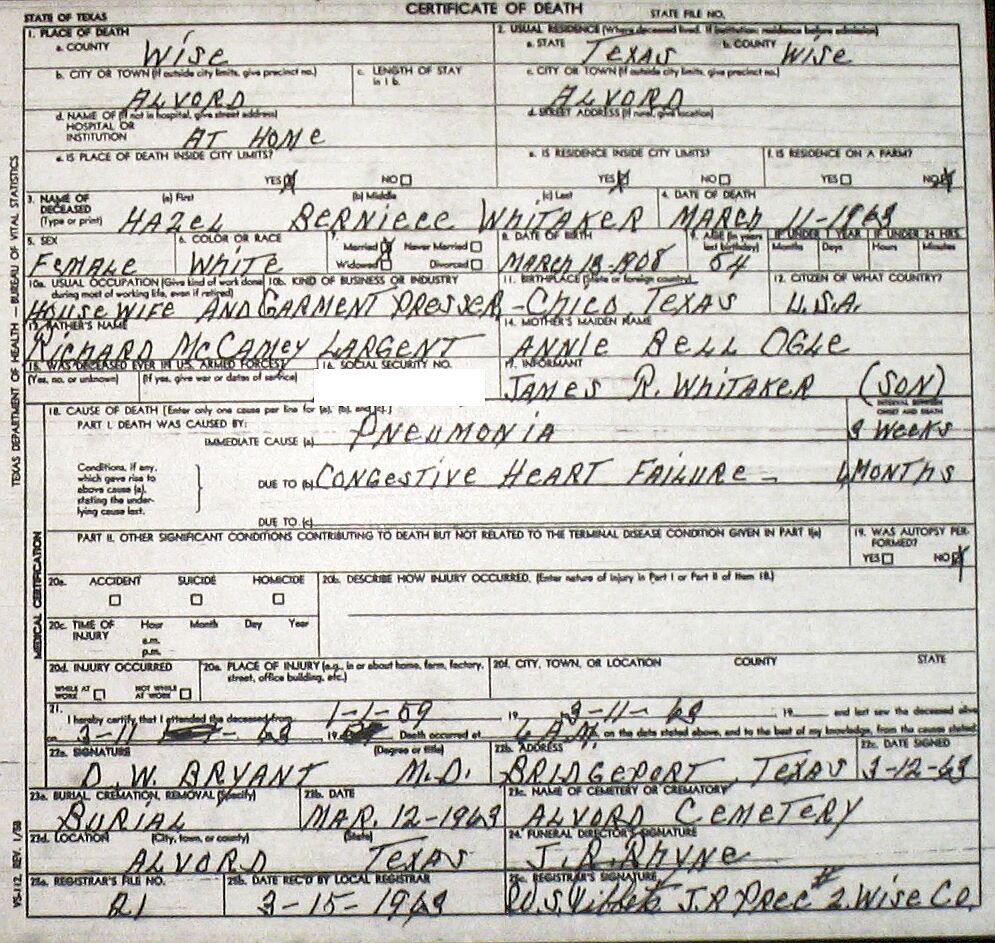 CERTIFICATE OF DEATH
STATE OF TEXAS STATE FILE NO.
1. PLACE OF DEATH 2. USUAL RESIDENCE (Where deceased lived. If institution: residence before admission)
a. COUNTY WISE a. STATE TEXAS b. COUNTY WISE
b. CITY OR TOWN (If outside city limits, give precinct no.) c. LENGTH OF STAY in 1b. c. CITY OR TOWN (If outside city limits, give precinct no.)
ALVORD ALVORD
d. NAME OF (If not in hospital, give street address) HOSPITAL OR INSTITUTION d. STREET ADDRESS (If rural, give location)
AT HOME
e. IS PLACE OF DEATH INSIDE CITY LIMITS? e. IS RESIDENCE INSIDE CITY LIMITS? f. IS RESIDENCE ON A FARM?
YES NO YES NO YES NO
3. NAME OF DECEASED (Type or print) (a) First (b) Middle (c) Last 4. DATE OF DEATH
HAZEL BERNIECE WHITAKER MARCH 11-1963
5. SEX 6. COLOR OR RACE 7. Married Never Married 8. DATE OF BIRTH 9. AGE (In years last birthday) IF UNDER 1 YEAR IF UNDER 24 HRS.
Widowed Divorced Months Days Hours Minutes
FEMALE WHITE MARCH 1908 54
10a. USUAL OCCUPATION (Give kind of work done during most of working life, even if retired) 10b. KIND OF BUSINESS OR INDUSTRY 11. BIRTHPLACE (State or foreign country) 12. CITIZEN OF WHAT COUNTRY?
HOUSEWIFE AND GARMENT PRESSER - CHICO TEXAS U.S.A.
13. FATHER'S NAME 14. MOTHER'S MAIDEN NAME
RICHARD McCAMEY LARGENT ANNIE BELL OGLE
15. WAS DECEASED EVER IN U.S. ARMED FORCES? 16. SOCIAL SECURITY NO. 17. INFORMANT
(Yes, no, or unknown) (If yes, give war or dates of service) JAMES R. WHITAKER (SON)
18. CAUSE OF DEATH [Enter only one cause per line for (a), (b), and (c).] INTERVAL BETWEEN ONSET AND DEATH
PART I. DEATH WAS CAUSED BY:
IMMEDIATE CAUSE (a) PNEUMONIA 3 WEEKS
Conditions, if any, which gave rise to above cause (a), stating the underlying cause last. DUE TO (b) CONGESTIVE HEART FAILURE - MONTHS
DUE TO (c)
PART II. OTHER SIGNIFICANT CONDITIONS CONTRIBUTING TO DEATH BUT NOT RELATED TO THE TERMINAL DISEASE CONDITION GIVEN IN PART I(a) 19. WAS AUTOPSY PERFORMED?
YES NO
20a. ACCIDENT SUICIDE HOMICIDE 20b. DESCRIBE HOW INJURY OCCURRED. (Enter nature of injury in Part I or Part II of Item 18.)
20c. TIME OF INJURY Hour Month Day Year
a.m.
p.m.
20d. INJURY OCCURRED 20e. PLACE OF INJURY (e.g., in or about home, farm, factory, street, office building, etc.) 20f. CITY, TOWN, OR LOCATION COUNTY STATE
WHILE AT WORK NOT WHILE AT WORK
21. I hereby certify that I attended the deceased from 1-1-59 19 3-11-63 19 and last saw the deceased alive
on 3-11 63 19 Death occurred at 6 A.M. on the date stated above, and to the best of my knowledge, from the cause stated.
22a. SIGNATURE (Degree or title) 22b. ADDRESS 22c. DATE SIGNED
D.W. BRYANT M.D. BRIDGEPORT, TEXAS 3-12-63
23a. BURIAL, CREMATION, REMOVAL (Specify) 23b. DATE 23c. NAME OF CEMETERY OR CREMATORY
BURIAL MAR. 12-1963 ALVORD CEMETERY
23d. LOCATION (City, town, or county) (State) 24. FUNERAL DIRECTOR'S SIGNATURE
ALVORD TEXAS J.R. RHYNE
25a. REGISTRAR'S FILE NO. 25b. DATE REC'D BY LOCAL REGISTRAR 25c. REGISTRAR'S SIGNATURE
21 3-15-1963 W.S. J.P. PREC #2. WISE CO.
TEXAS DEPARTMENT OF HEALTH — BUREAU OF VITAL STATISTICS
MEDICAL CERTIFICATION
VS-112, REV. 1/58